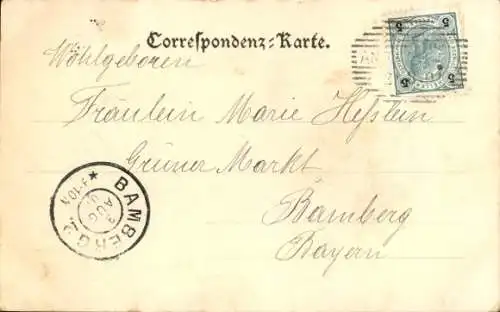 Correspondenz-Karte.
Wohlgeboren
Fräulein Marie Heßlein
Grüner Markt
Bamberg
Bayern
BAMBERG 2.
AUG
5
5
5
5